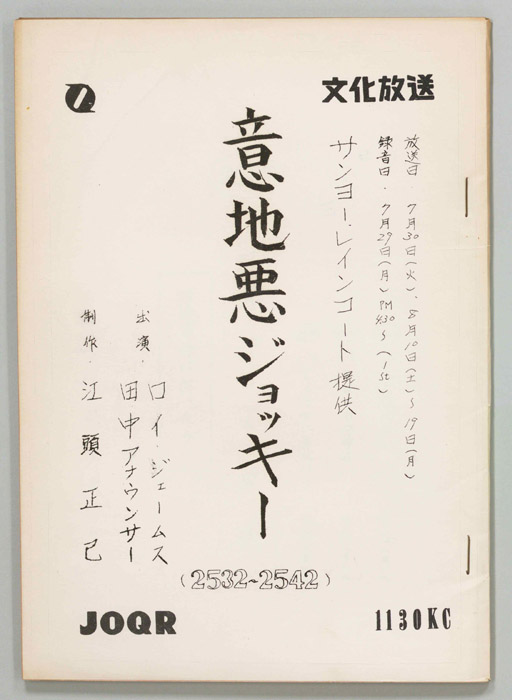 文化放送
放送日 7月30日(火)、8月10日(土)〜19日(月)
録音日・7月29日(月)PM4:30〜(1st)
サンヨー・レインコート提供
意地悪ジョッキー
出演・ロイ・ジェームス
田中アナウンサー
制作・江頭正己
(2532~2542)
JOQR
1130KC